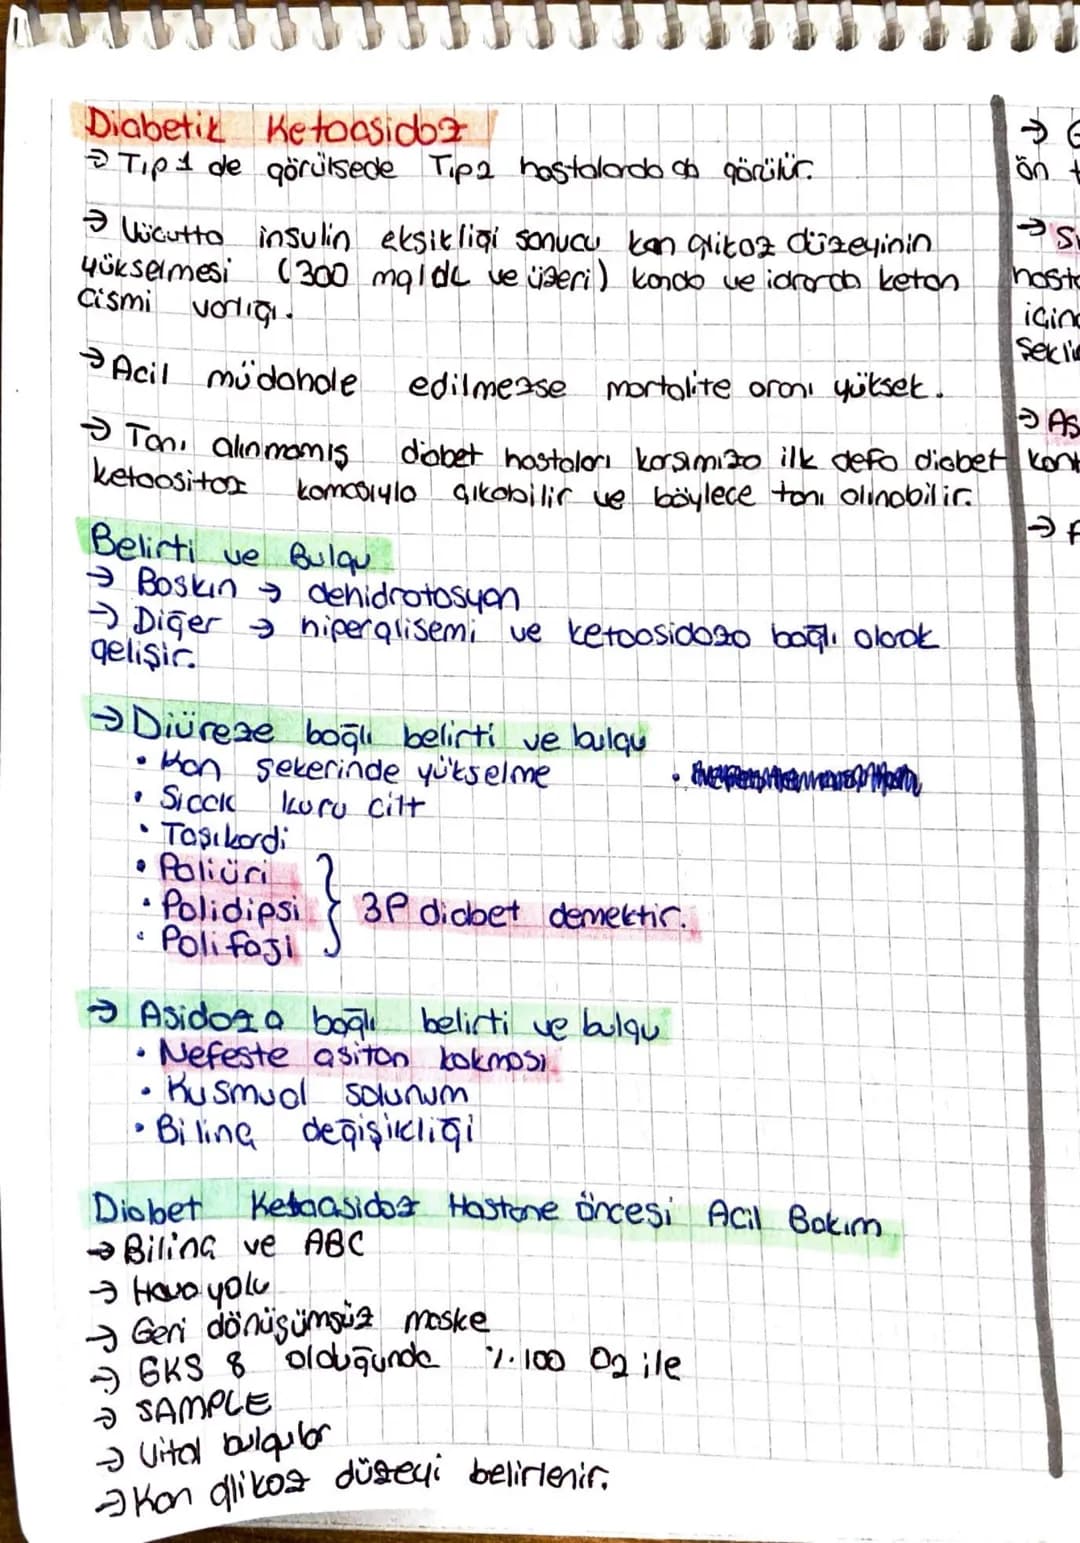 Diabetik Ketoasidoz
→ Tıp 1 de görülsede Tıp2 hastalarda da görülür.
→ Vücutta insulin eksikliği sonucu kan glikoz düzeyinin
yükselmesi (300 mg/dL ve üzeri) kanda ve idrarda keton
cismi varlığı.
→ Acil müdahale edilmezse mortalite oranı yüksek.
→ Tanı alınmamış diabet hastaları karşımıza ilk defa diabet
ketoasitoz komasıyla çıkabilir ve böylece tanı alınabilir.
Belirti ve Bulgu
→ Baskın → dehidratasyon
→ Diğer → hiperglisemi ve ketoasidoza bağlı olarak
gelişir.
→ Diüreze bağlı belirti ve bulgu
• Kan şekerinde yükselme
• Sıcak kuru cilt
• Taşikardi
• Poliüri
• Polidipsi } 3P diabet demektir.
• Polifaji
→ Asidoza bağlı belirti ve bulgu
• Nefeste asiton kokması
• Kusmaul solunum
• Bilinç değişikliği
Diabet Ketoasidoz Hastane öncesi Acil Bakım
→ Bilinç ve ABC
→ Hava yolu
→ Geri dönüşümsüz maske
→ GKS 8 olduğunda %100 O2 ile
→ SAMPLE
→ Vital bulgular
→ Kan glikoz düzeyi belirlenir.
→
ön
→
→
→